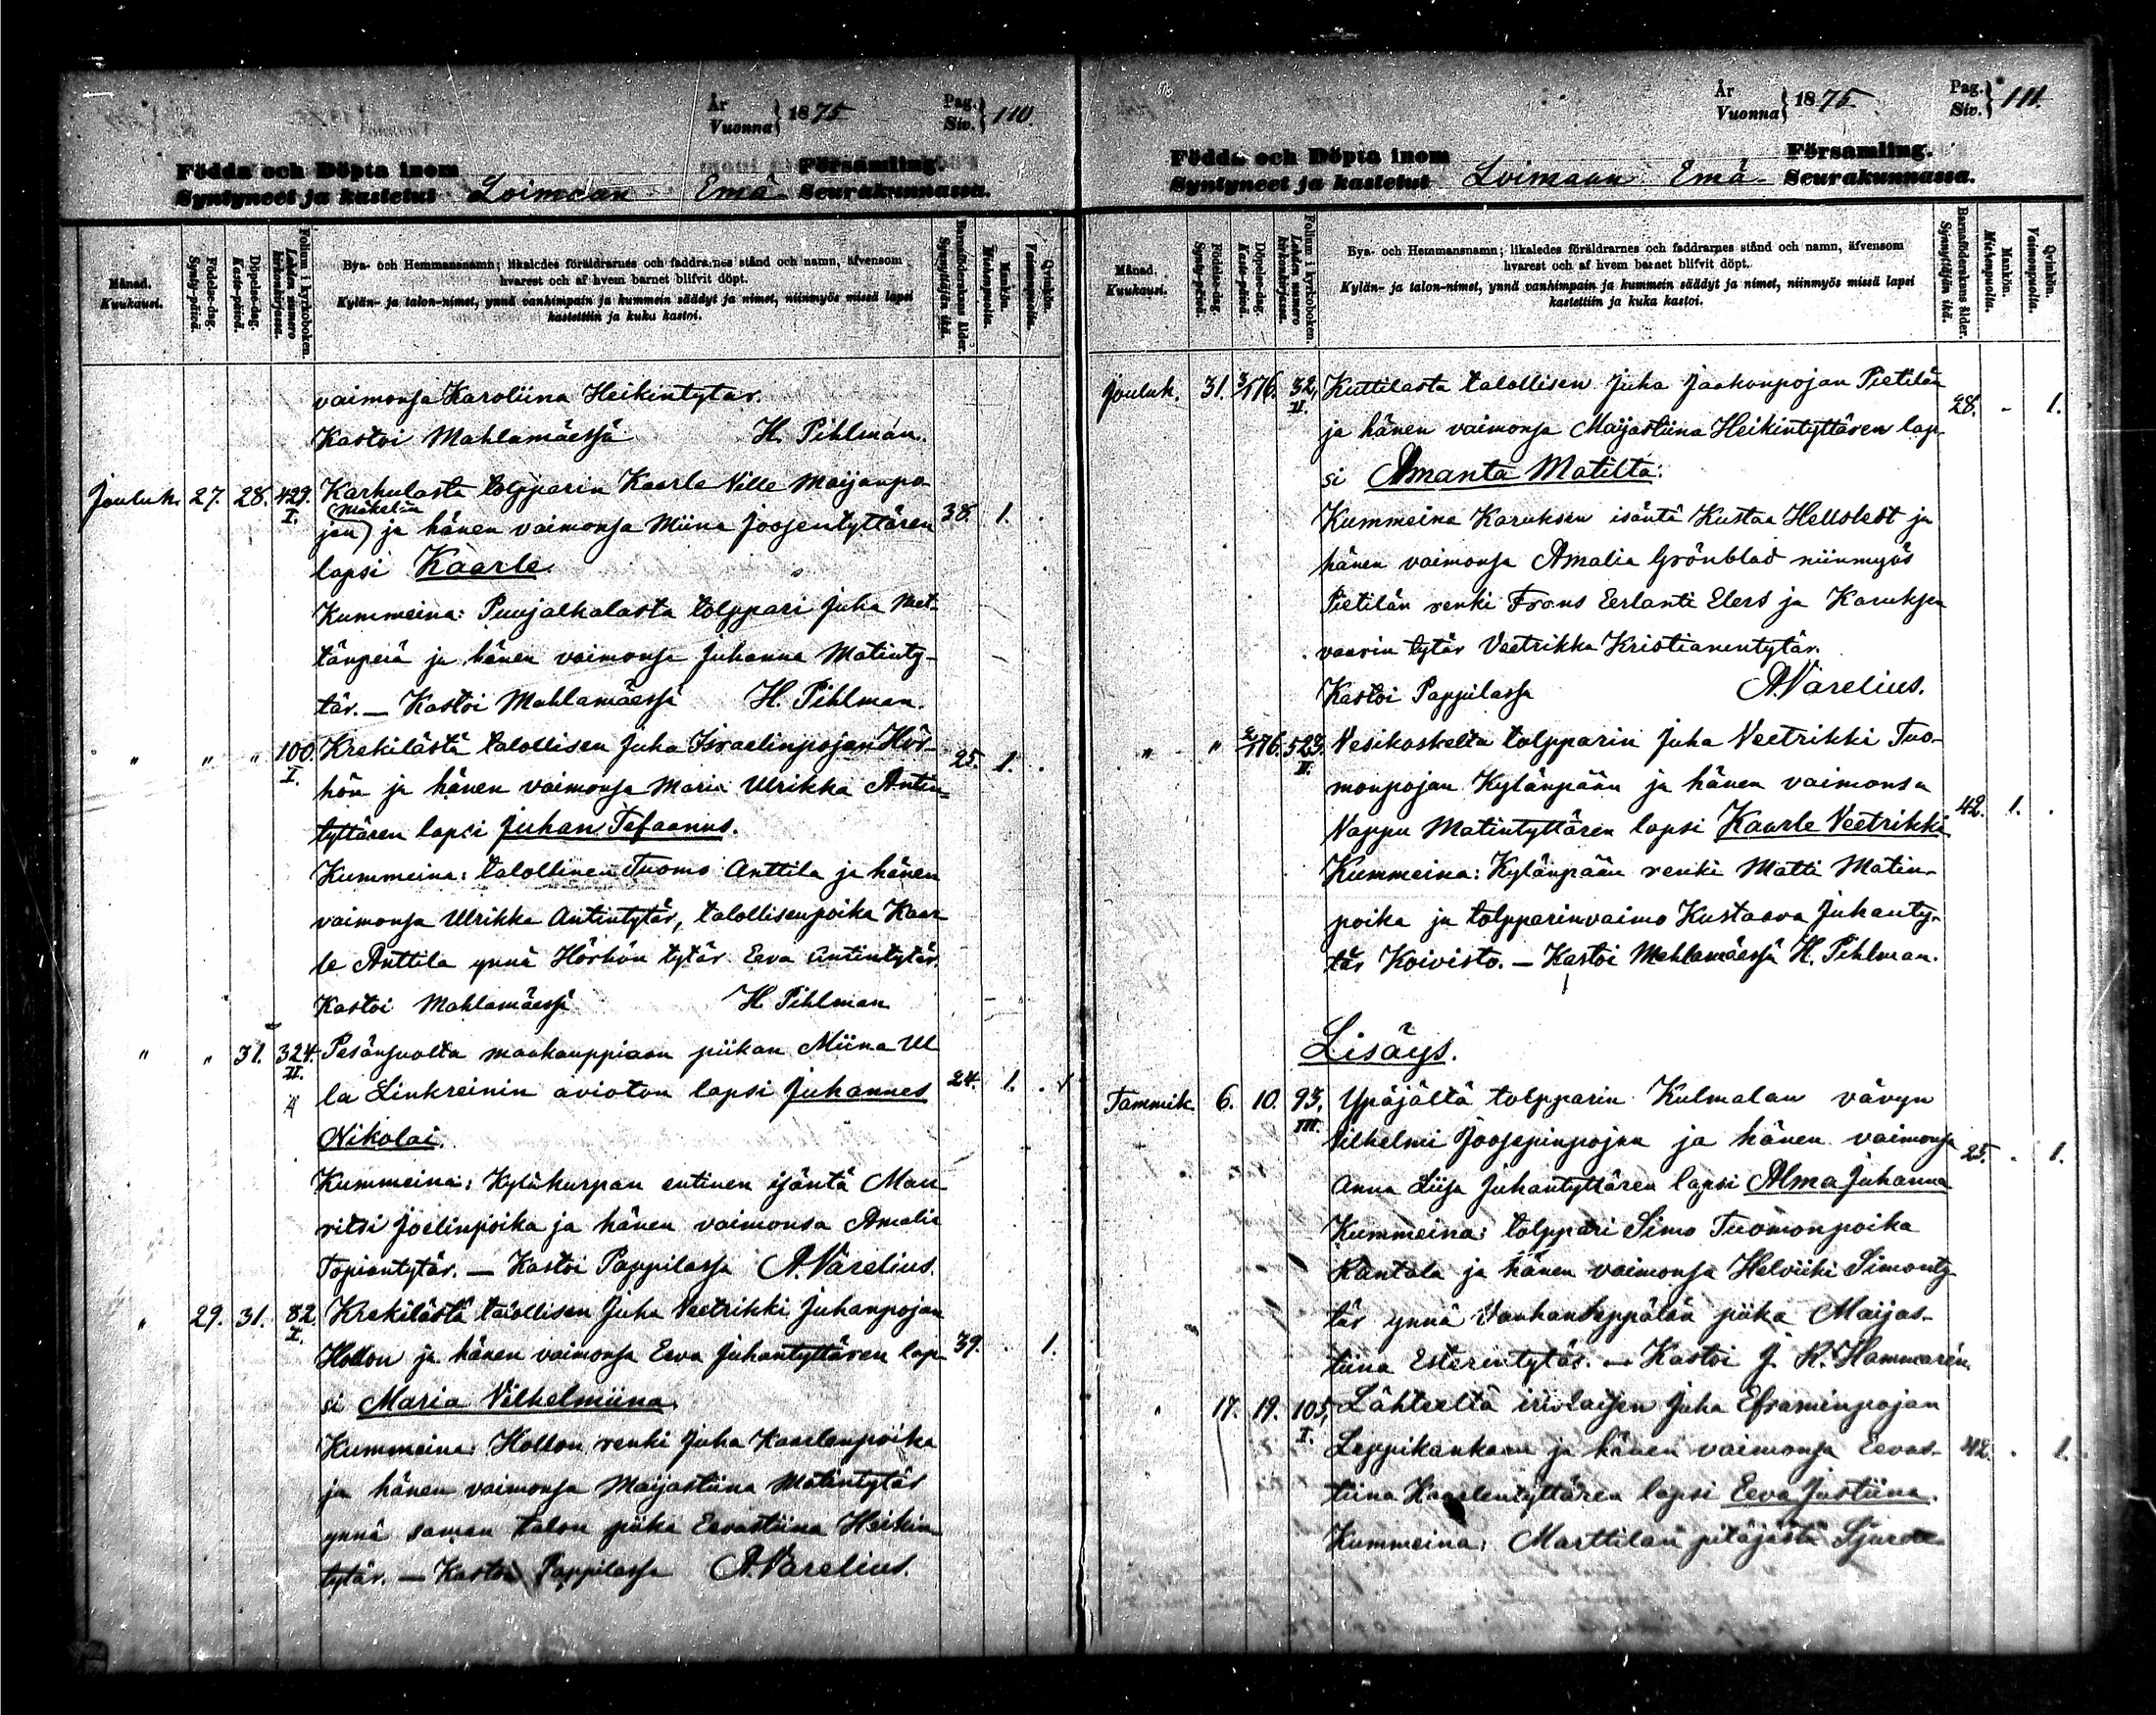 År
Vuonna } 1875
Pag.
Siv. } 110.
Födda och Döpta inom Församling.
Syntyneet ja kastetut Loimaan Emä- Seurakunnassa.
Månad.
Kuukausi.
Födelse-dag.
Synty-päivä.
Döpelse-dag.
Kaste-päivä.
Folium i kyrkoboken.
Lehden numero kirkonkirjassa.
Bya- och Hemmansnamn; likaledes föräldrarnes och faddrarnes stånd och namn, äfvensom
hvarest och af hvem barnet blifvit döpt.
Kylän- ja talon-nimet, ynnä vanhimpain ja kummein säädyt ja nimet, niinmyös missä lapsi
kastettiin ja kuka kastoi.
Barnaföderskans ålder.
Synnyttäjän ikä.
Mankön.
Miehenpuolia.
Qvinkön.
Vaimonpuolia.
vaimonsa Karoliina Heikintytär.
Kastoi Mahlamäessä H. Pihlman.
Jouluk. 27. 28. 429. Karhulasta tolpparin Kaarle Ville Maijanpo
I. (Mäkelän
jan) ja hänen vaimonsa Miina Joosentyttären 38. 1. .
lapsi Kaarle.
Kummeina: Puujalkalasta tolppari Juha Met-
tänperä ja hänen vaimonsa Juhanna Matinty-
tär. — Kastoi Mahlamäessä H. Pihlman.
" " " 100. Krekilästä talollisen Juha Israelinpojan Hör-
I. hön ja hänen vaimonsa Maria Ulrikka Antin= 25. 1. .
tyttären lapsi Juhan Tefaanus.
Kummeina: talollinen Tuomo Anttila ja hänen
vaimonsa Ulrikka Antintytär, talollisenpoika Kaar-
le Anttila ynnä Hörhön tytär Eeva Antintytär.
Kastoi Mahlamäessä H. Pihlman
" " 31. 324. Pesänsuolta maakauppiaan piikan Miina Ul
II. la Linkreinin avioton lapsi Juhannes 24. 1. .
Nikolai.
Kummeina: Kylähurpan entinen isäntä Mau
ritsi Joelinpoika ja hänen vaimonsa Amalia
Topiantytär. — Kastoi Pappilassa A. Varelius.
" 29. 31. 82 Krekilästä talollisen Juha Veetrikki Juhanpojan
I. Hollon ja hänen vaimonsa Eeva Juhantyttären lap- 39. . 1.
si Maria Vilhelmiina.
Kummeina: Hollon renki Juha Kaarlenpoika
ja hänen vaimonsa Maijastiina Matintytär
ynnä saman talon piika Eevastiina Heikin
tytär. — Kastoi Pappilassa A. Varelius.
År
Vuonna } 1875
Pag.
Siv. } 111.
Födda och Döpta inom Församling.
Syntyneet ja kastetut Loimaan Emä- Seurakunnassa.
Månad.
Kuukausi.
Födelse-dag.
Synty-päivä.
Döpelse-dag.
Kaste-päivä.
Folium i kyrkoboken.
Lehden numero kirkonkirjassa.
Bya- och Hemmansnamn; likaledes föräldrarnes och faddrarnes stånd och namn, äfvensom
hvarest och af hvem barnet blifvit döpt.
Kylän- ja talon-nimet, ynnä vanhimpain ja kummein säädyt ja nimet, niinmyös missä lapsi
kastettiin ja kuka kastoi.
Barnaföderskans ålder.
Synnyttäjän ikä.
Mankön.
Miehenpuolia.
Qvinkön.
Vaimonpuolia.
Jouluk. 31. 3/1 76. 32, Kuttilasta talollisen Juha Jaakonpojan Pietilän
II. ja hänen vaimonsa Maijastiina Heikintyttären lap- 28. - 1.
si Amanta Matilta:
Kummeina Karuksen isäntä Kustaa Hellstedt ja
hänen vaimonsa Amalia Grönblad niinmyös
Pietilän renki Frans Eerlanti Elers ja Karuksen
vaarin tytär Veetrikka Kristianintytär.
Kastoi Pappilassa A. Varelius.
" " 2/1 76. 523. Vesikoskelta tolpparin Juha Veetrikki Tuo-
II. monpojan Kylänpään ja hänen vaimonsa
Vappu Matintyttären lapsi Kaarle Veetrikki 42. 1. .
Kummeina: Kylänpään renki Matti Matin-
poika ja tolpparinvaimo Kustaava Juhanty-
tär Koivisto. — Kastoi Mahlamäessä H. Pihlman.
Lisäys.
Tammik. 6. 10. 93, Ypäjältä tolpparin Kulmalan vävyn
III. Vilhelmi Joosepinpojan ja hänen vaimonsa
Anna Liisa Juhantyttären lapsi Alma Juhanna 25. . 1.
Kummeina: tolppari Simo Tuomonpoika
Rantala ja hänen vaimonsa Helviiki Simonty-
tär ynnä Vanhanseppälän piika Maijas-
tiina Esterintytär. — Kastoi J. R. Hammarén.
" 17. 19. 105, Lähteeltä irtolaisen Juha Eframinpojan
I. Leppikankaan ja hänen vaimonsa Eevas- 42. . 1.
tiina Kaarlentyttären lapsi Eeva Justiina.
Kummeina: Marttilan pitäjästä